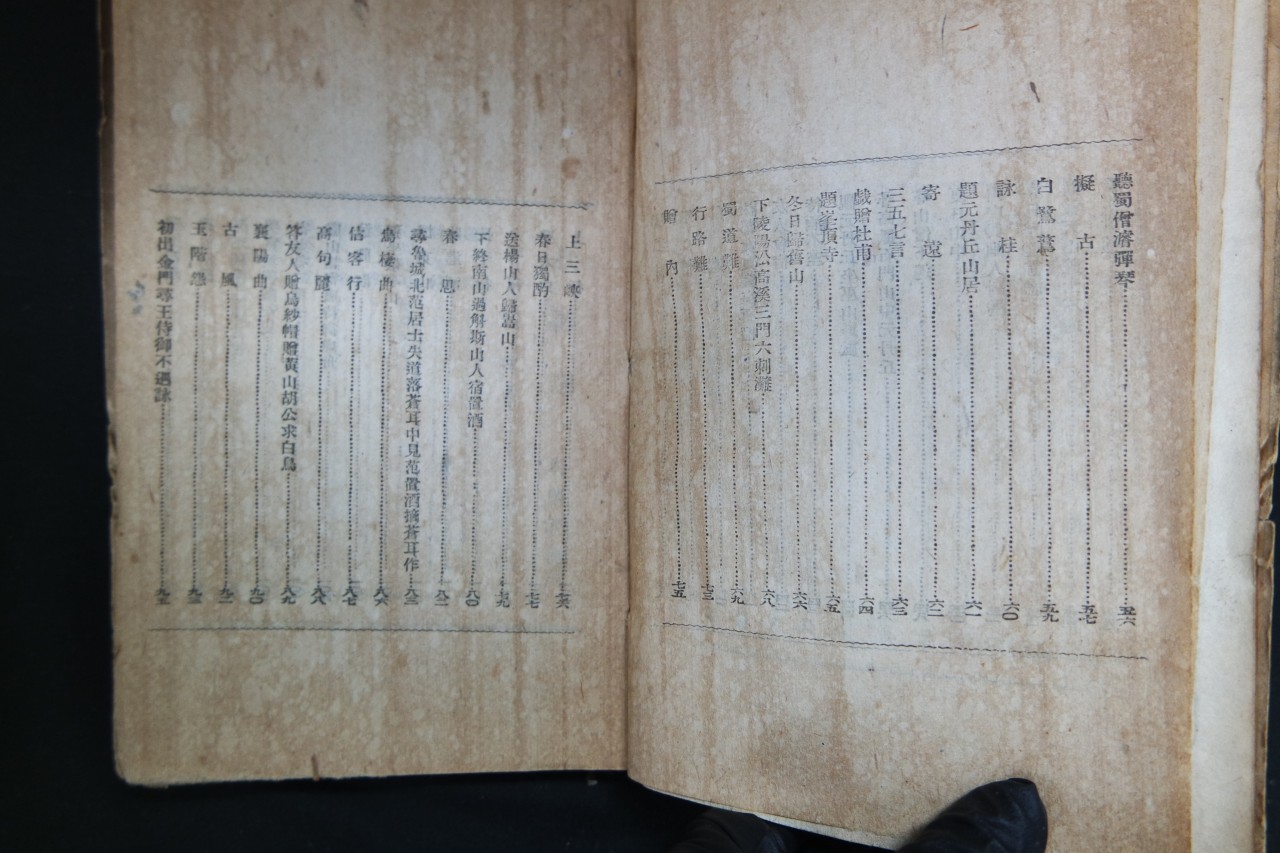 聽蜀僧濬彈琴……五六
擬古……五七
白鷺鷥……五九
詠桂……六〇
題元丹丘山居……六一
寄遠……六二
三五七言……六三
戲贈杜甫……六四
題峯頂寺……六五
冬日歸舊山……六六
下陵陽沿高溪三門六刺灘……六八
蜀道難……六九
行路難……七三
贈內……七五
上三峽……七六
春日獨酌……七七
送楊山人歸嵩山……七九
下終南山過斛斯山人宿置酒……八〇
春思……八一
尋魯城北范居士失道落蒼耳中見范置酒摘蒼耳作……八三
烏棲曲……八六
估客行……八七
高句麗……八八
答友人贈烏紗帽贈黃山胡公求白鳥……八九
襄陽曲……九〇
古風……九一
玉階怨……九三
初出金門尋王侍御不遇詠……九五